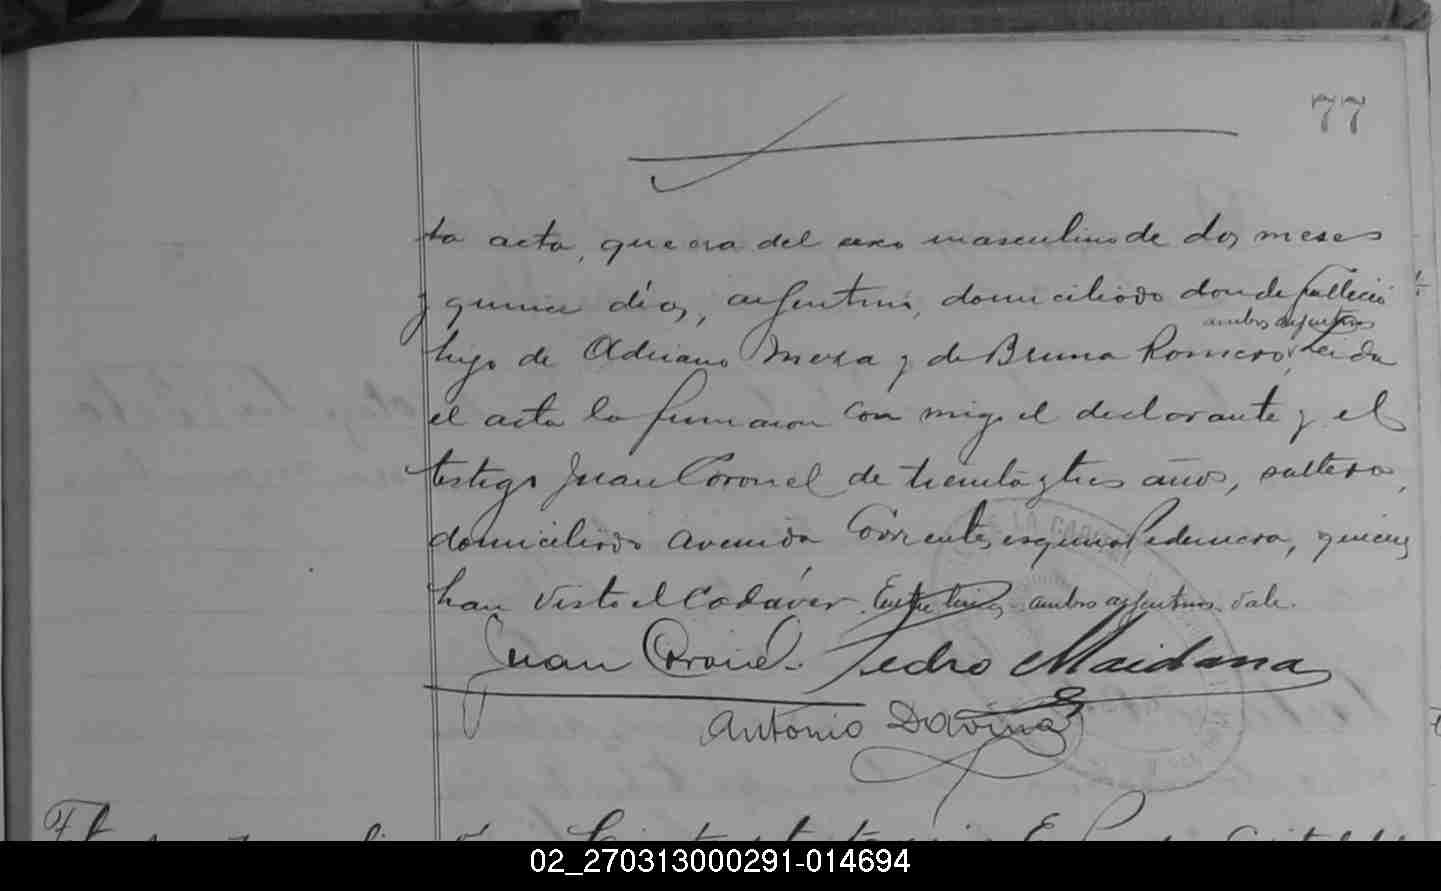 77
ta acta, que era del sexo masculino de dos meses
y quince días, argentino, domiciliado donde falleció
ambos argentinos
hijo de Adriano Meza y de Bruna Romero, Leida
el acta la firmaron con migo el declarante y el
testigo Juan Coronel de treinta y tres años, soltero,
domiciliado avenida Corrientes esquina Pedernera, quienes
han visto el Cadáver. Entre líneas - ambos argentinos. Vale.
Juan Coronel. Pedro Maidana
Antonio Davina
02_270313000291-014694